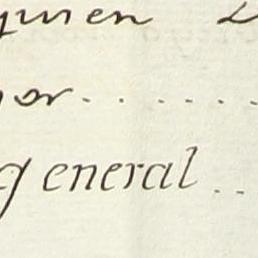 quien
or.......
general..